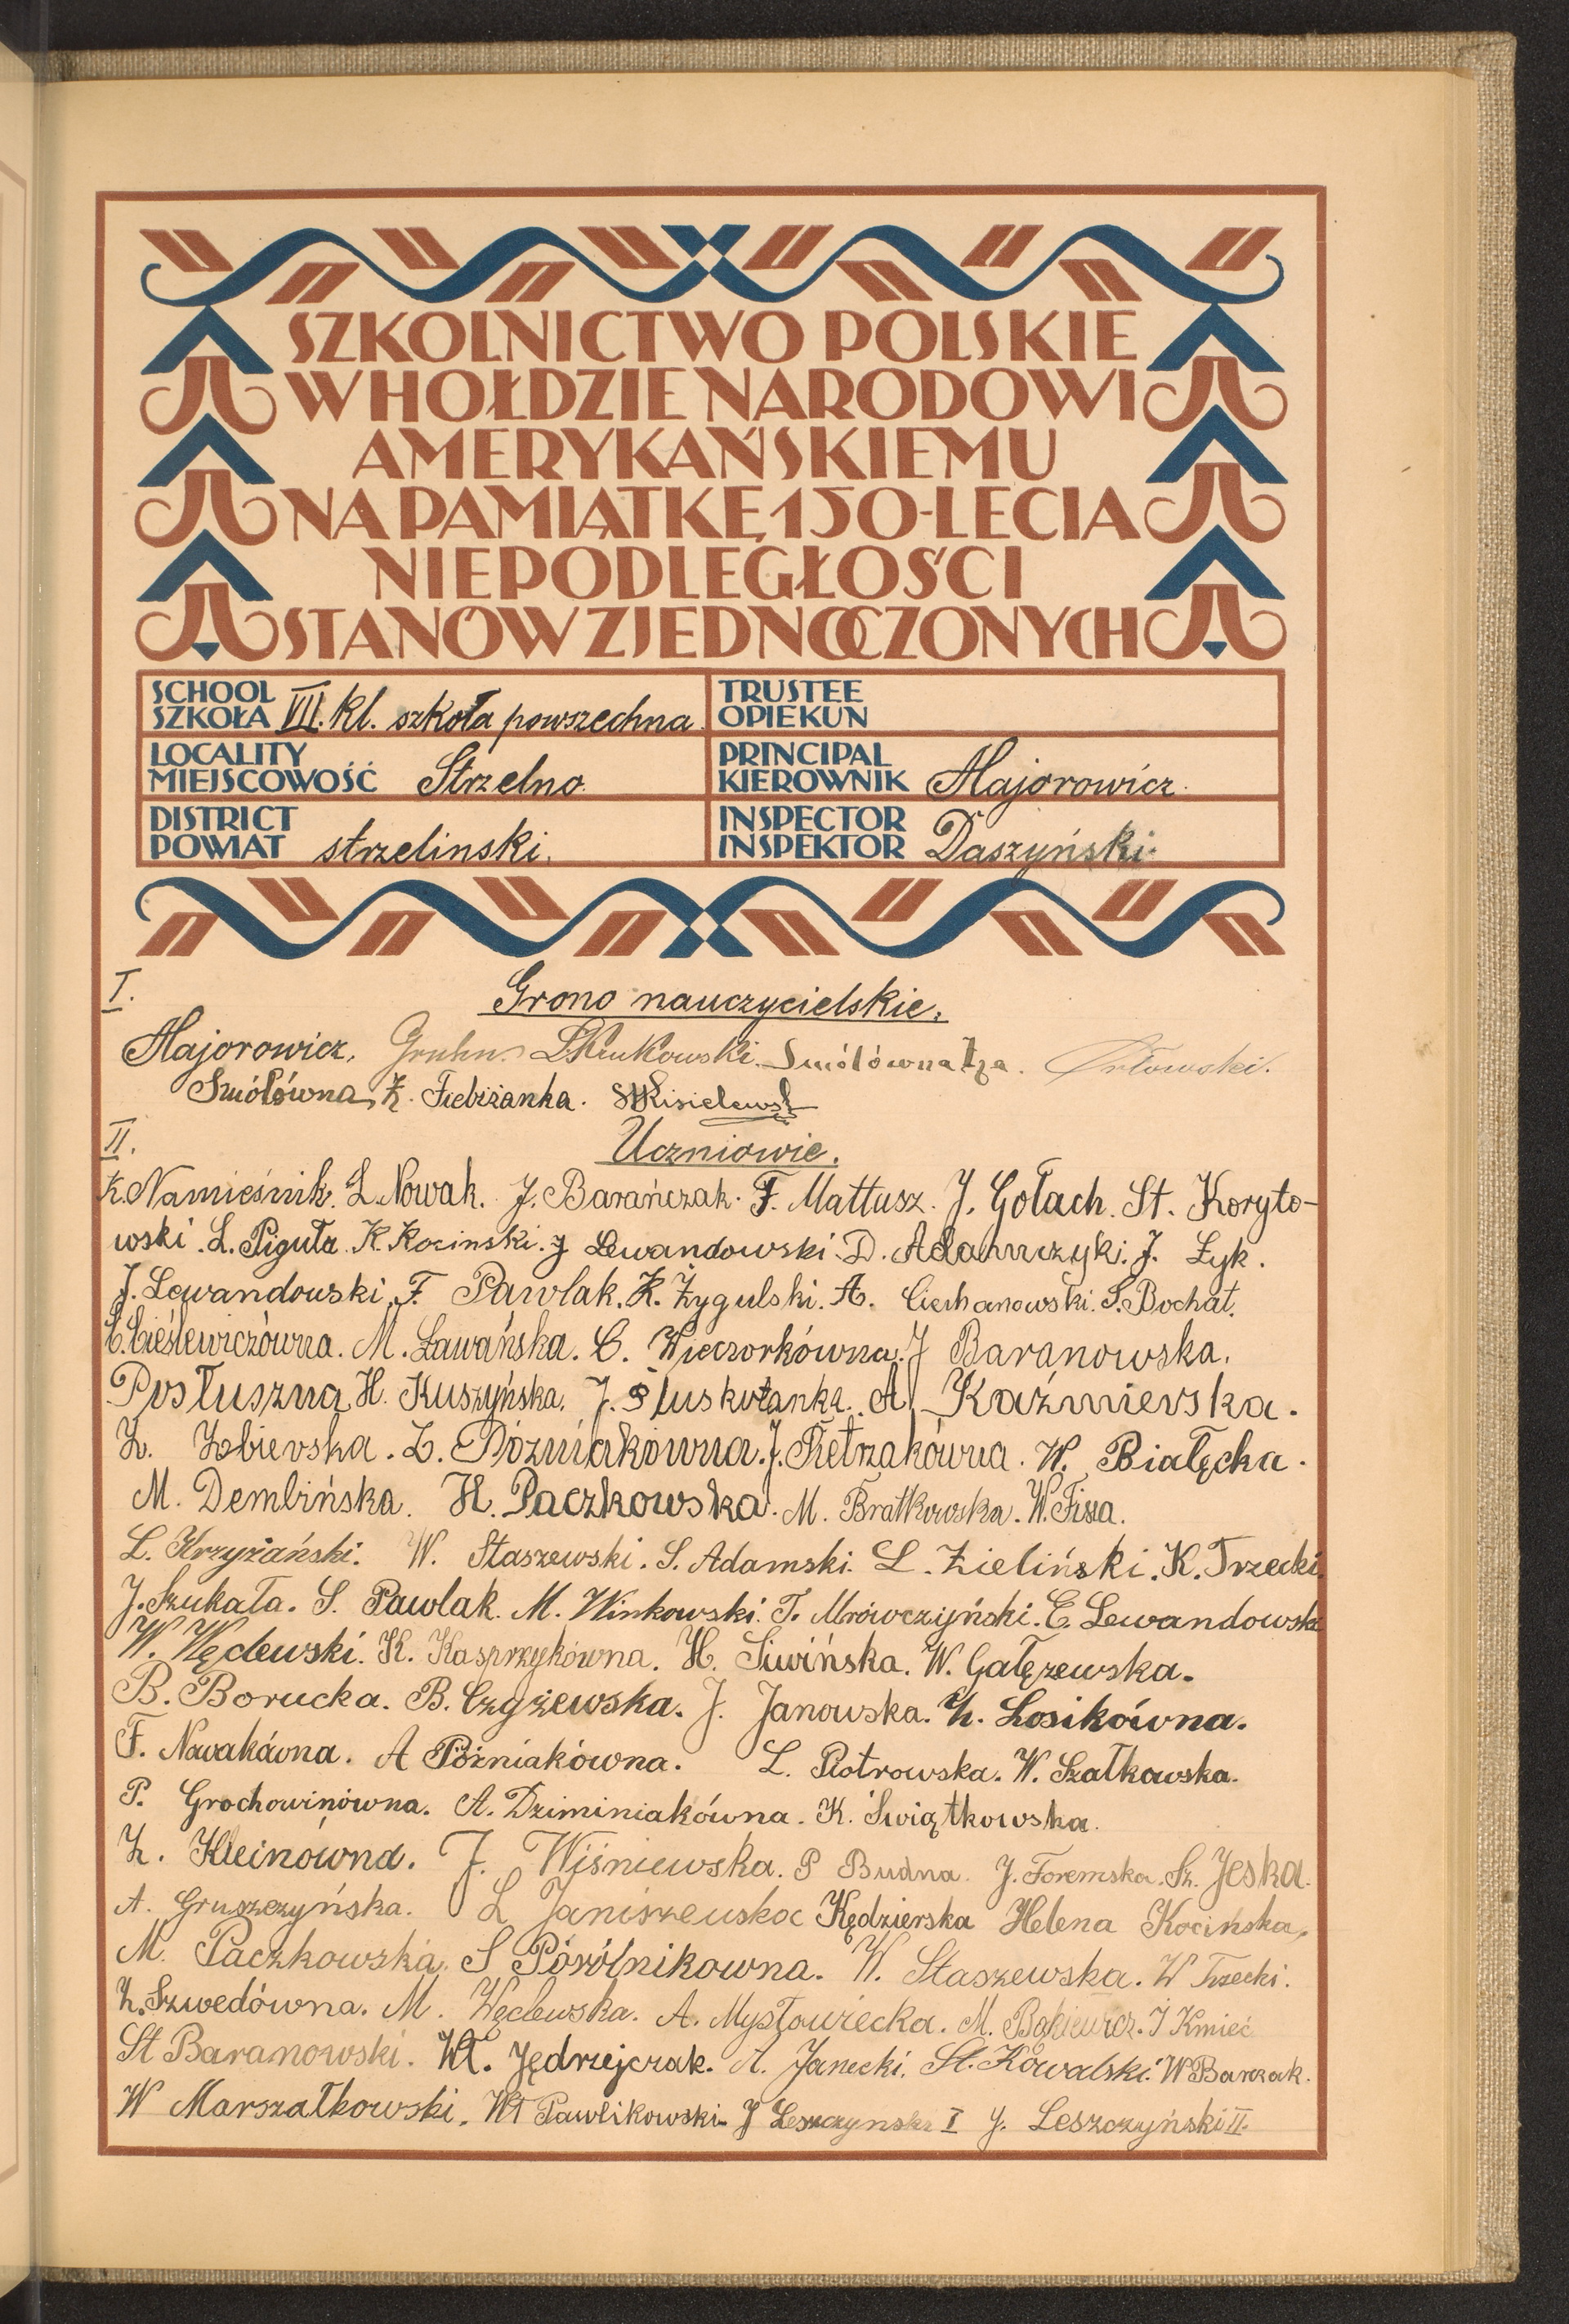 SZKOLNICTWO POLSKIE
W HOŁDZIE NARODOWI
AMERYKAŃSKIEMU
NA PAMIĄTKĘ 150-LECIA
NIEPODLEGŁOŚCI
STANÓW ZJEDNOCZONYCH
SCHOOL
SZKOŁA VII. kl. szkoła powszechna
TRUSTEE
OPIEKUN
LOCALITY
MIEJSCOWOŚĆ Strzelno.
PRINCIPAL
KIEROWNIK Majorowicz.
DISTRICT
POWIAT strzelinski.
INSPECTOR
INSPEKTOR Daszyński.
I.
Grono nauczycielskie.
Majorowicz, Gruhn. Smółówna Iza. Orłowski.
Smółówna, Z. Fiebiżanka. Kisielewsk
II.
Uczniowie.
K. Namieśnik. L. Nowak. J. Barańczak. F. Mattusz. J. Gołach. St. Koryto-
wski. L. Piguła. K. Kocinski. J Lewandowski. D. Adamczyki. J. Łyk.
J. Lewandowski. F. Pawlak. K. Żygulski. A. Ciechanowski. S. Bochat.
C. Cieślewiczówna. M. Ławańska. C. Wieczorkówna. J Baranowska.
Posłuszna H. Kuszyńska. J. Pluskotanka. A. Kaźmierska.
Z. Zbierska. Z. Poźniakówna. J. Pietrzakówna. W. Białęcka.
M. Dembińska. H. Paczkowska. M. Bratkowska. W. Fissa.
L. Krzyżański. W. Staszewski. S. Adamski. L. Zieliński. K. Trzecki.
J. Szukała. S. Pawlak. M. Winkowski. T. Mrówczyński. E. Lewandowski
W. Węclewski. K. Kasprzykówna. H. Siwińska. W. Gałęzewska.
B. Borucka. B. Czyżewska. J. Janowska. Z. Losikówna.
F. Nowakówna. A Poźniakówna. L. Piotrowska. W. Szatkowska.
P. Grochowinówna. A. Dziminiakówna. K. Świątkowska.
Z. Kleinówna. J. Wiśniewska. P Budna. J. Foremska. Sz. Jeska.
A. Gruszczyńska. L Janiszewska Kędzierska Helena Kocińska,
M. Paczkowska. S Pórólnikowna. W. Staszewska. W Trzecki.
Z. Szwedówna. M. Węclewska. A. Mysłowiecka. M. Bąkiewicz. J Kmieć
St Baranowski. Wł. Jędrzejczak. A. Janecki. St. Kowalski. W Barczak.
W Marszałkowski. Wł Pawlikowski. J Leszczynski I J. Leszczyński II.